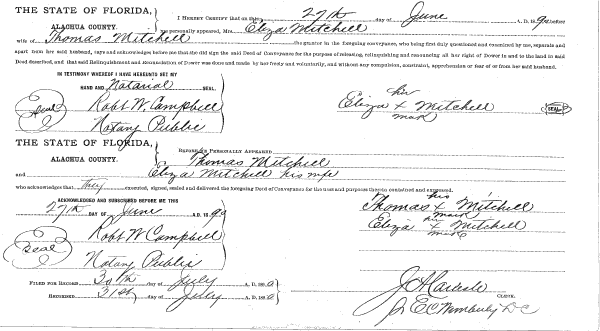 THE STATE OF FLORIDA, I HEREBY CERTIFY that on this 27th day of June A. D. 1890 before
ALACHUA COUNTY. me personally appeared, Mrs Eliza Mitchell
wife of Thomas Mitchell the grantor in the foregoing conveyance, who being first duly questioned and examined by me, separate and
apart from her said husband, says and acknowledges before me that she did sign the said Deed of Conveyance for the purpose of releasing, relinquishing and renouncing all her right of Dower in and to the land in said
Deed described, and that said Relinquishment and Renunciation of Dower was done and made by her freely and voluntarily, and without any compulsion, constraint, apprehension or fear of or from her said husband.
IN TESTIMONY WHEREOF I HAVE HEREUNTO SET MY
HAND AND Notarial SEAL.
Seal Robt W. Campbell
Notary Public
her
Eliza x Mitchell SEAL
mark
THE STATE OF FLORIDA, BEFORE ME PERSONALLY APPEARED
ALACHUA COUNTY. Thomas Mitchell
and Eliza Mitchell his wife
who acknowledges that they executed, signed, sealed and delivered the foregoing Deed of Conveyance for the uses and purposes therein contained and expressed.
ACKNOWLEDGED AND SUBSCRIBED BEFORE ME THIS
27th DAY OF June A. D. 1890
Seal Robt W Campbell
Notary Public
his
Thomas x Mitchell
mark
her
Eliza x Mitchell
mark
FILED FOR RECORD 30th day of July A. D. 1890
RECORDED 31st day of July A. D. 1890
CLERK.
E C Wimberly D C